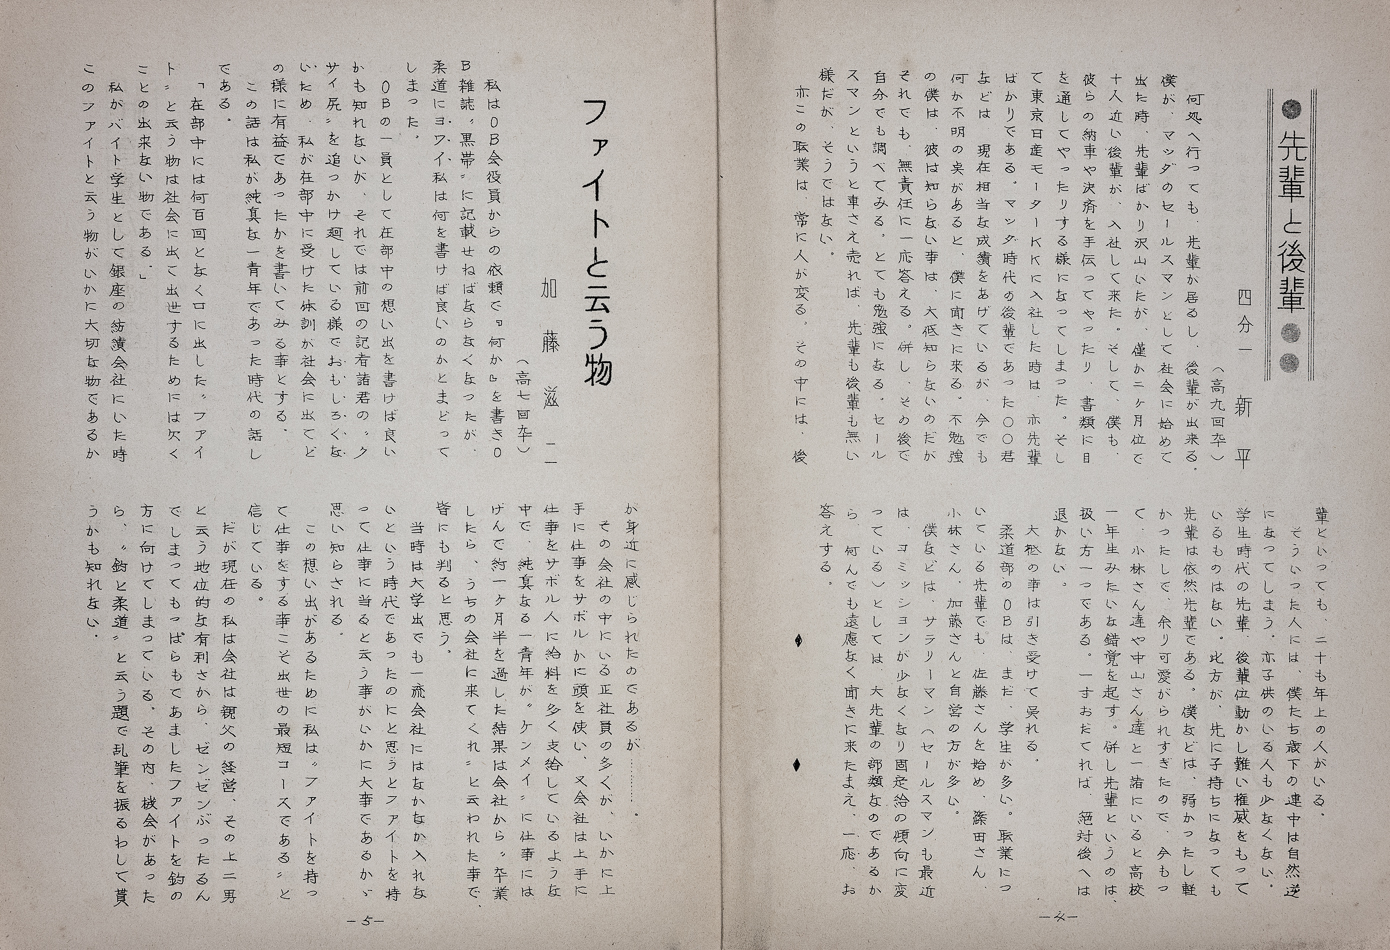 ●先輩と後輩●●
四分一　新平
（高九回卒）
何処へ行っても、先輩が居るし、後輩が出来る。
僕が、マツダのセールスマンとして社会に始めて
出た時、先輩ばかり沢山いたが、僅か二ヶ月位で
十人近い後輩が、入社して来た。そして、僕も、
彼らの納車や決済を手伝ってやったり、書類に目
を通してやったりする様になってしまった。そし
て東京日産モーターKKに入社した時は、亦先輩
ばかりである。マツダ時代の後輩であった〇〇君
などは、現在相当な成績をあげているが、今でも
何か不明の点があると、僕に聞きに来る。不勉強
の僕は、彼は知らない事は、大低知らないのだが
それでも、無責任に一応答える。併し、その後で
自分でも調べてみる。とても勉強になる。セール
スマンというと車さえ売れば、先輩も後輩も無い
様だが、そうではない。
亦この職業は、常に人が変る。その中には、後
輩といっても、二十も年上の人がいる。
そういった人には、僕たち歳下の連中は自然逆
になってしまう。亦子供のいる人も少なくない。
学生時代の先輩　後輩位動かし難い権威をもって
いるものはない。此方が、先に子持ちになっても
先輩は依然先輩である。僕などは、弱かったし軽
かったしで、余り可愛がられすぎたので、今もっ
て、小林さん達や中山さん達と一諸にいると高校
一年生みたいな錯覚を起す。併し先輩というのは、
扱い方一つである。一寸おだてれば、絶対後へは
退かない。
大抵の事は引き受けて呉れる。
柔道部のOBは、まだ、学生が多い。職業につ
いている先輩でも、佐藤さんを始め、篠田さん、
小林さん、加藤さんと自営の方が多い。
僕などは、サラリーマン（セールスマンも最近
は、コミッションが少なくなり固定給の傾向に変
っている）としては、大先輩の部類なのであるか
ら、何んでも遠慮なく聞きに来たまえ、一応、お
答えする。
－4－
ファイトと云う物
加藤滋二
（高七回卒）
私はOB会役員からの依頼で『何か』を書きO
B雑誌〝黒帯〟に記載せねばならなくなったが、
柔道にヨワイ私は何を書けば良いのかとまどって
しまった。
OBの一員として在部中の想い出を書けば良い
かも知れないが、それでは前回の記者諸君の〝ク
サイ尻〟を追っかけ廻している様でおもしろくな
いため、私が在部中に受けた体訓が社会に出てど
の様に有益であったかを書いてみる事とする。
この話は私が純真な一青年であった時代の話し
である。
「在部中には何百回となく口に出した〝ファイ
ト〟と云う物は社会に出て出世するためには欠く
ことの出来ない物である。」
私がバイト学生として銀座の紡績会社にいた時
このファイトと云う物がいかに大切な物であるか
が身近に感じられたのであるが………。
その会社の中にいる正社員の多くが、いかに上
手に仕事をサボルかに頭を使い、又会社は上手に
仕事をサボル人に給料を多く支給しているような
中で、純真なる一青年が〝ケンメイ〟に仕事には
げんで約一ヶ月半を過した結果は会社から〝卒業
したら、うちの会社に来てくれ〟と云われた事で、
皆にも判ると思う。
当時は大学出でも一流会社にはなかなか入れな
いという時代であったのにと思うとファイトを持
って仕事に当ると云う事がいかに大事であるかゞ
思い知らされる。
この想い出があるために私は〝ファイトを持っ
て仕事をする事こそ出世の最短コースである〟と
信じている。
だが現在の私は会社は親父の経営、その上二男
と云う地位的な有利さから、ゼンゼンぶったるん
でしまってもっぱらもてあましたファイトを釣の
方に向けてしまっている。その内、機会があった
ら、〝釣と柔道〟と云う題で乱筆を振るわして貰
うかも知れない。
－5－